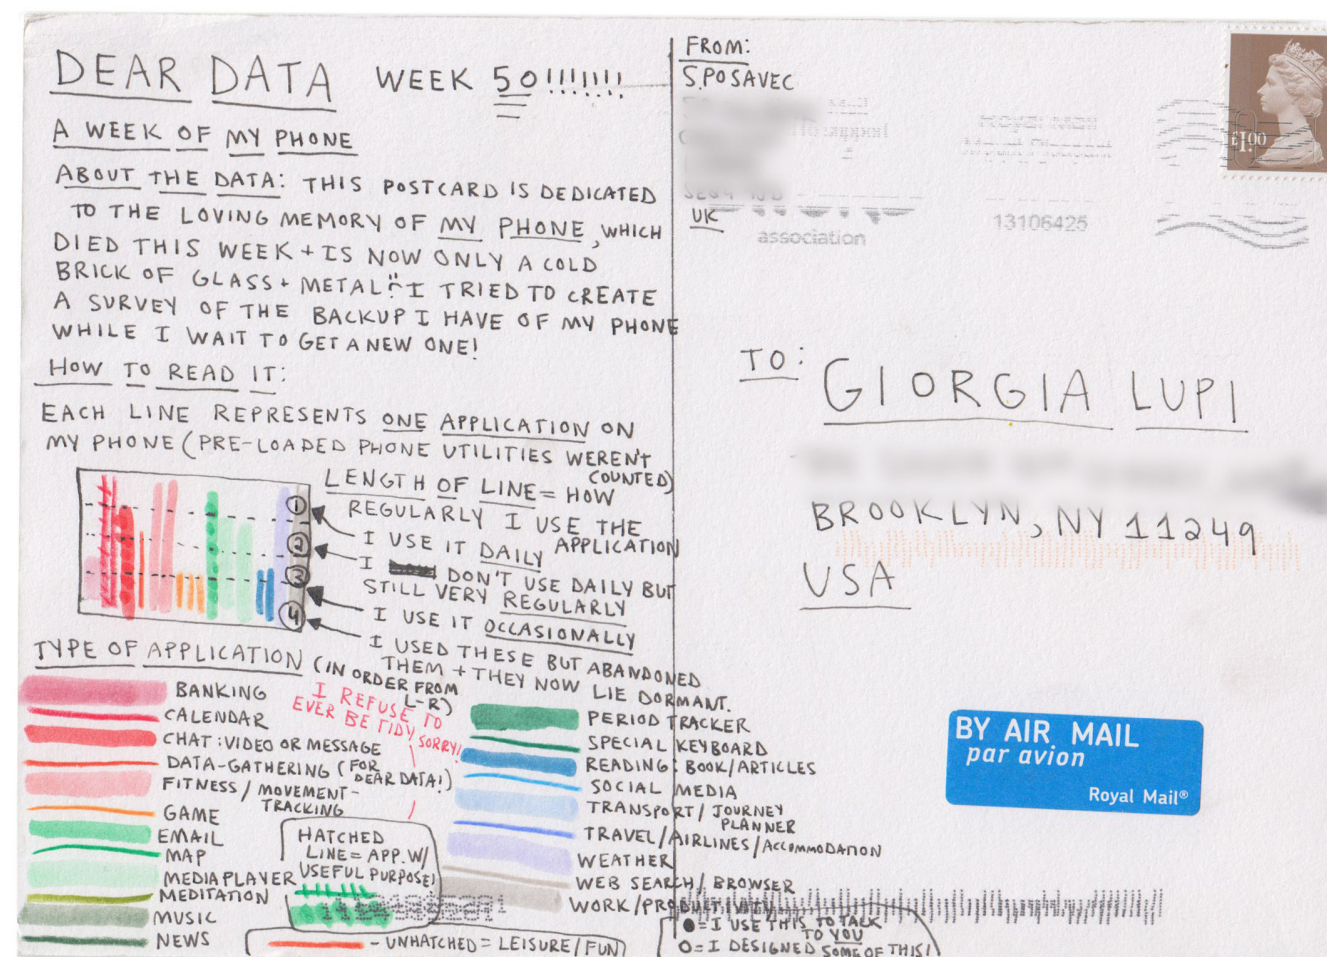 DEAR DATA WEEK 50!!!!!!!
A WEEK OF MY PHONE
ABOUT THE DATA: THIS POSTCARD IS DEDICATED
TO THE LOVING MEMORY OF MY PHONE, WHICH
DIED THIS WEEK + IS NOW ONLY A COLD
BRICK OF GLASS + METAL! I TRIED TO CREATE
A SURVEY OF THE BACKUP I HAVE OF MY PHONE
WHILE I WAIT TO GET A NEW ONE!
HOW TO READ IT:
EACH LINE REPRESENTS ONE APPLICATION ON
MY PHONE (PRE-LOADED PHONE UTILITIES WEREN'T
COUNTED)
LENGTH OF LINE = HOW
REGULARLY I USE THE
APPLICATION
1
2
3
4
I USE IT DAILY
I DON'T USE DAILY BUT
STILL VERY REGULARLY
I USE IT OCCASIONALLY
I USED THESE BUT ABANDONED
THEM + THEY NOW LIE DORMANT.
TYPE OF APPLICATION (IN ORDER FROM
L-R)
I REFUSE TO
EVER BE TIDY SORRY!
BANKING
CALENDAR
CHAT: VIDEO OR MESSAGE
DATA-GATHERING (FOR
DEAR DATA!)
FITNESS/MOVEMENT-
TRACKING
GAME
EMAIL
MAP
MEDIA PLAYER
MEDITATION
MUSIC
NEWS
PERIOD TRACKER
SPECIAL KEYBOARD
READING: BOOK/ARTICLES
SOCIAL MEDIA
TRANSPORT/JOURNEY
PLANNER
TRAVEL/AIRLINES/ACCOMMODATION
WEATHER
WEB SEARCH/BROWSER
WORK/PRODUCTIVITY
HATCHED
LINE = APP. W/
USEFUL PURPOSE!
- UNHATCHED = LEISURE/FUN
= I USE THIS TO TALK
TO YOU
= I DESIGNED SOME OF THIS!
FROM:
S.POSAVEC
UK
association
13106425
£1.00
TO: GIORGIA LUPI
BROOKLYN, NY 11249
USA
BY AIR MAIL
par avion
Royal Mail®